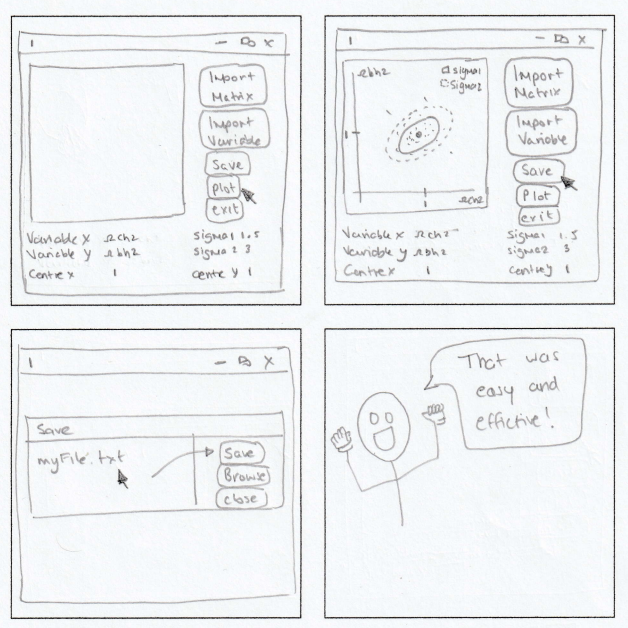 Import
Matrix
Import
Variable
Save
Plot
exit
Variable x Ωch2 Sigma1 1.5
Variable y Ωbh2 Sigma2 3
Centre x 1 centre y 1
Ωbh2
Sigma1
Sigma2
1
1
Ωch2
Import
Matrix
Import
Variable
Save
Plot
exit
Variable x Ωch2 Sigma1 1.5
Variable y Ωbh2 Sigma2 3
Centre x 1 Centre y 1
Save
myFile.txt
Save
Browse
close
That was
easy and
effictive!